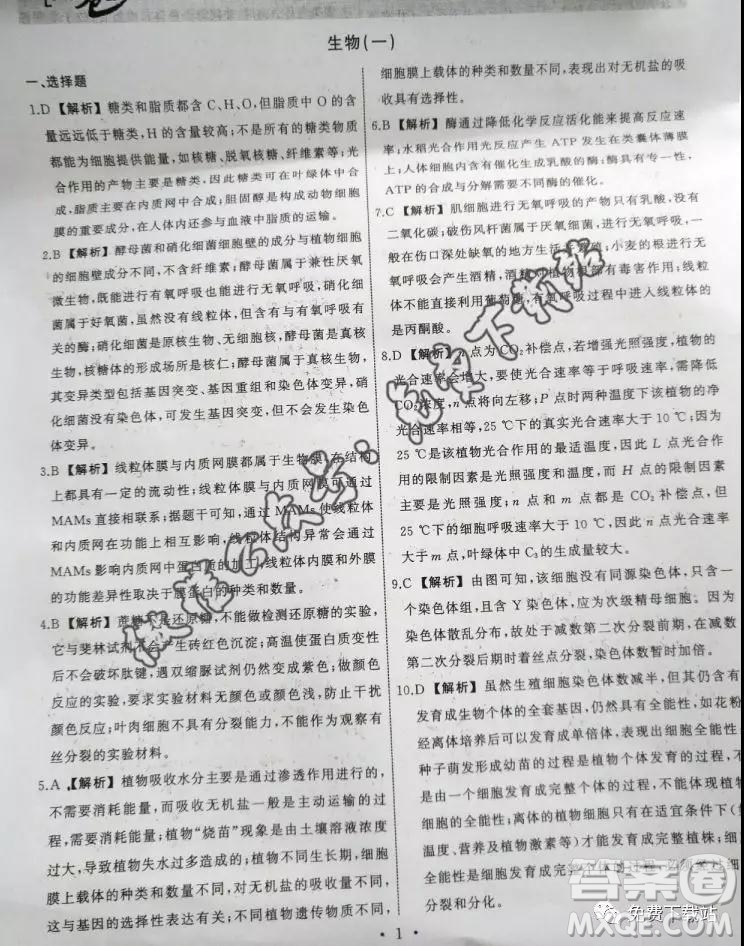 生物(一)
一、选择题
1.D 【解析】糖类和脂质都含 C、H、O,但脂质中 O 的含
量远远低于糖类,H 的含量较高;不是所有的糖类物质
都能为细胞提供能量,如核糖、脱氧核糖、纤维素等;光
合作用的产物主要是糖类,因此糖类可在叶绿体中合
成,脂质主要在内质网中合成;胆固醇是构成动物细胞
膜的重要成分,在人体内还参与血液中脂质的运输。
2.B 【解析】酵母菌和硝化细菌细胞壁的成分与植物细胞
的细胞壁成分不同,不含纤维素;酵母菌属于兼性厌氧
微生物,既能进行有氧呼吸也能进行无氧呼吸,硝化细
菌属于好氧菌,虽然没有线粒体,但含有与有氧呼吸有
关的酶;硝化细菌属于原核生物,无细胞核、无核仁,有
核糖体,核糖体形成场所是核仁;酵母菌属于真核生物,
其变异类型包括基因突变、基因重组和染色体变异,硝
化细菌没有染色体,可发生基因突变,但不会发生染色
体变异。
3.B 【解析】线粒体膜与内质网膜都属于生物膜,在结构
上都具有一定的流动性;线粒体与内质网能通过
MAMs 直接相联系;据题干可知,通过 MAMs 使线粒体
和内质网在功能上相互影响,线粒体结构异常会通过
MAMs 影响内质网中蛋白质的加工;线粒体内膜和外膜
的功能差异性取决于膜蛋白的种类和数量。
4.B 【解析】蔗糖不是还原糖,不能做检测还原糖的实验,
它与斐林试剂不会产生砖红色沉淀;高温使蛋白质变性
后不会破坏肽键,遇双缩脲试剂仍然变成紫色;做颜色
反应的实验,要求实验材料无颜色或颜色浅,以防干扰
颜色反应;叶肉细胞不具有分裂能力,不能作为观察有
丝分裂的实验材料。
5.A 【解析】植物吸收水分主要是通过渗透作用进行的,
不需要消耗能量,而吸收无机盐的一般是主动运输的过
程,需要消耗能量;植物“烧苗”现象是由土壤溶液浓度
过大,导致植物失水过多造成的;植物不同生长期,细胞
膜上载体的种类和数量不同,对无机盐的吸收量不同,
这与基因的选择性表达有关;不同植物遗传物质不同,
细胞膜上载体的种类和数量不同,表现出对无机盐的吸
收具有选择性。
6.B 【解析】酶通过降低化学反应活化能来提高反应速
率;水稻光合作用光反应产生 ATP 发生在类囊体薄膜
上;人体细胞内含有催化生成乳酸的酶;酶具有专一性,
ATP 的合成与分解需要不同酶的催化。
7.C 【解析】肌细胞无氧呼吸的产物只有乳酸,没有
二氧化碳;破伤风杆菌属于厌氧细菌,进行无氧呼吸,一
般在伤口深处缺氧的地方生活和繁殖;小麦的根进行无
氧呼吸会产生酒精,酒精对植物根部有毒害作用;线粒
体不能直接利用葡萄糖,有氧呼吸过程中进入线粒体的
是丙酮酸。
8.D 【解析】n 点为 CO₂ 补偿点,若增强光照强度,植物的
光合速率会增大,要使光合速率等于呼吸速率,需降低
CO₂浓度,n 点将向左移;P 点时两温度下该植物的净
光合速率相等,25 ℃下的真实光合速率大于 10 ℃;因为
25 ℃是该植物光合作用的最适温度,因此 L 点光合作
用的限制因素是光照强度,而 H 点的限制因素
主要是光照强度;n 点和 m 点都是 CO₂ 补偿点,但
25 ℃下的细胞呼吸速率大于 10 ℃,所以 n 点光合速率
大于 m 点,叶绿体中 C₃的生成量较大。
9.C 【解析】由图可知,该细胞没有同源染色体,只含一
个染色体组,且含 Y 染色体,应为次级精母细胞。因为
染色体散乱分布,故处于减数第二次分裂前期,在减数
第二次分裂后期时着丝点分裂,染色体数暂时加倍。
10.D 【解析】虽然生殖细胞染色体数减半,但其仍含有
发育成生物个体的全套基因,仍然具有全能性,如花粉
经离体培养后可以发育成单倍体,表现出了全能性;
种子萌发形成幼苗的过程是植物个体发育的过程,不
是细胞发育成完整个体的过程,不能体现细胞
的全能性;离体的植物细胞只有在适宜条件下(
温度、营养及植物激素等)才能发育成完整植株;细胞
全能性是细胞发育成完整个体的
分裂和分化。
1
答案圈
MXQE.COM
免费下载站